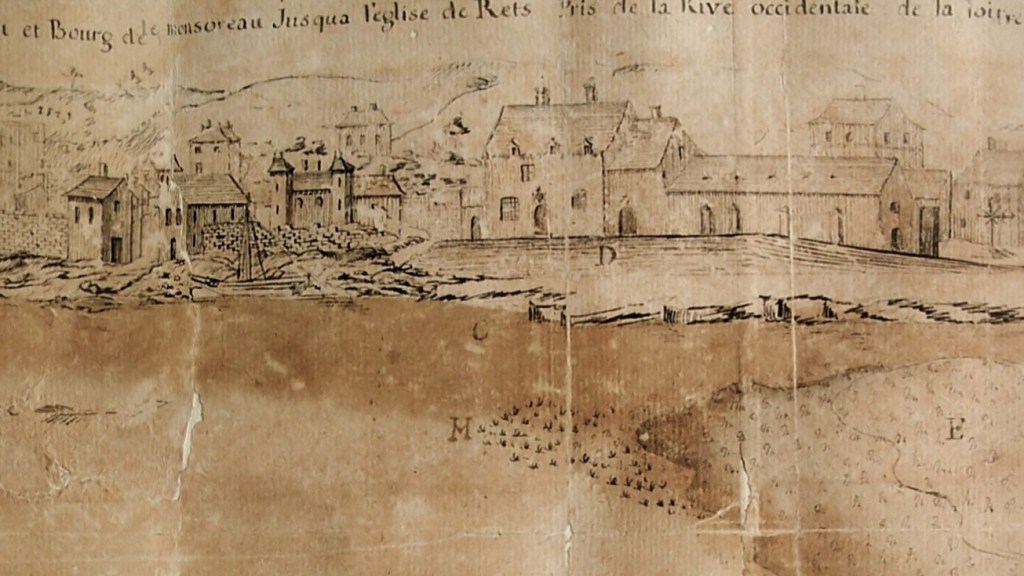 et Bourg de monsoreau Jusqua l'eglise de Rets Pris de la Rive occidentale de la loirre
D
C
M
E